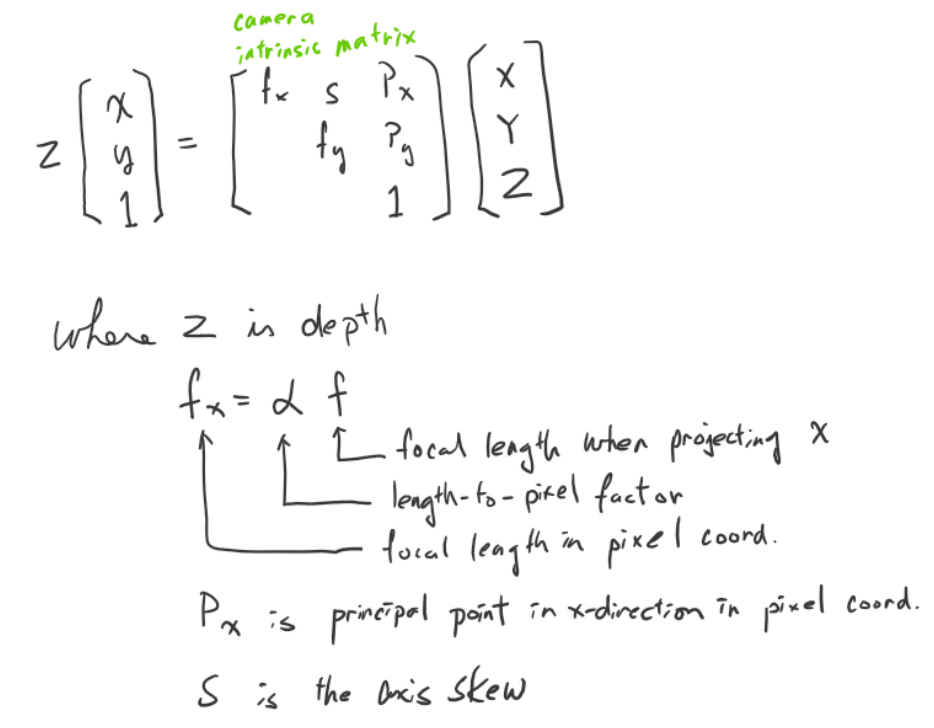 camera
intrinsic matrix
z [x y 1] = [fx s Px fy Py 1] [X Y Z]
where z is depth
fx = α f
focal length when projecting x
length-to-pixel factor
focal length in pixel coord.
Px is principal point in x-direction in pixel coord.
S is the axis skew